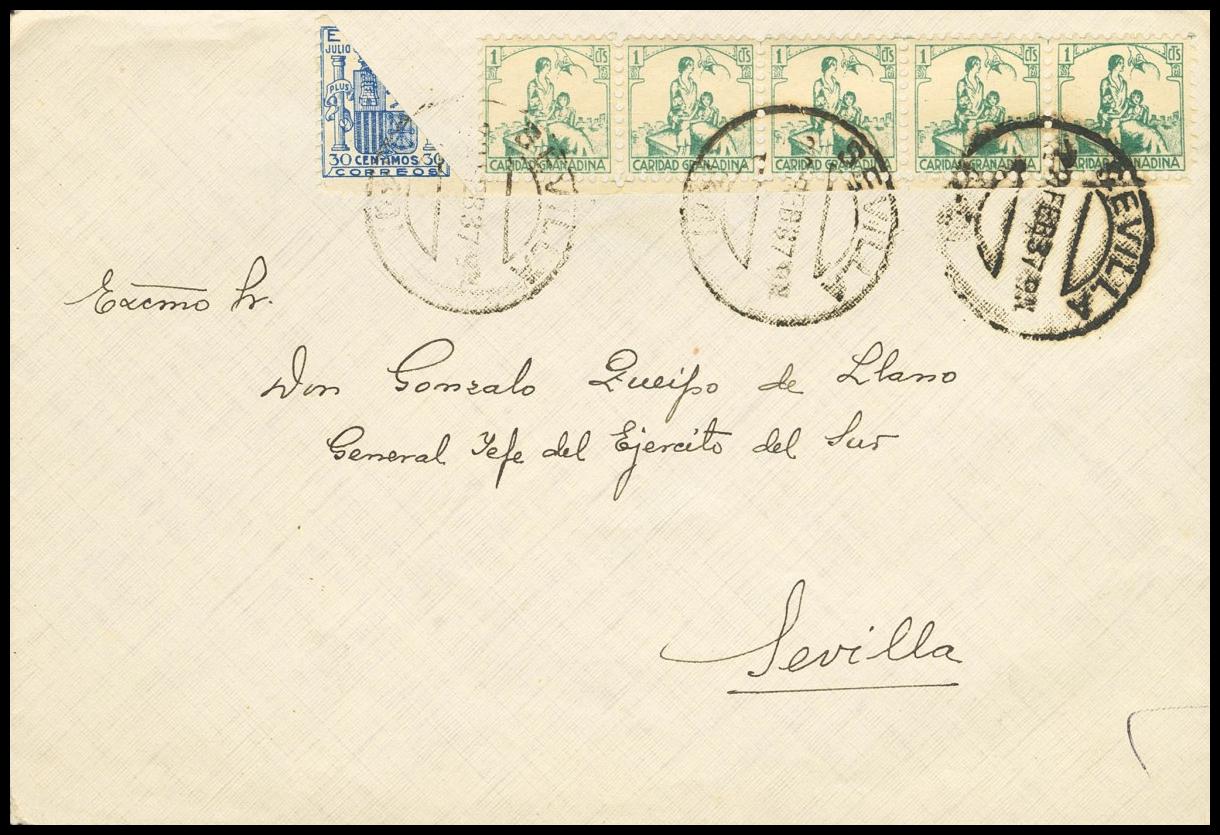 E
JULIO
PLUS
30 CENTIMOS 30
CORREOS
1 CTS 1 CTS 1 CTS 1 CTS 1 CTS
CARIDAD GRANADINA CARIDAD GRANADINA CARIDAD GRANADINA CARIDAD GRANADINA CARIDAD GRANADINA
SEVILLA SEVILLA SEVILLA
FEB37
Excmo Sr.
Don Gonzalo Queipo de Llano
General Jefe del Ejercito del Sur
Sevilla